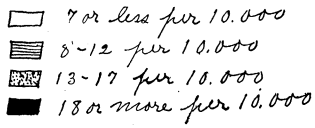 7 or less per 10.000
8-12 per 10.000
13-17 per 10.000
18 or more per 10.000